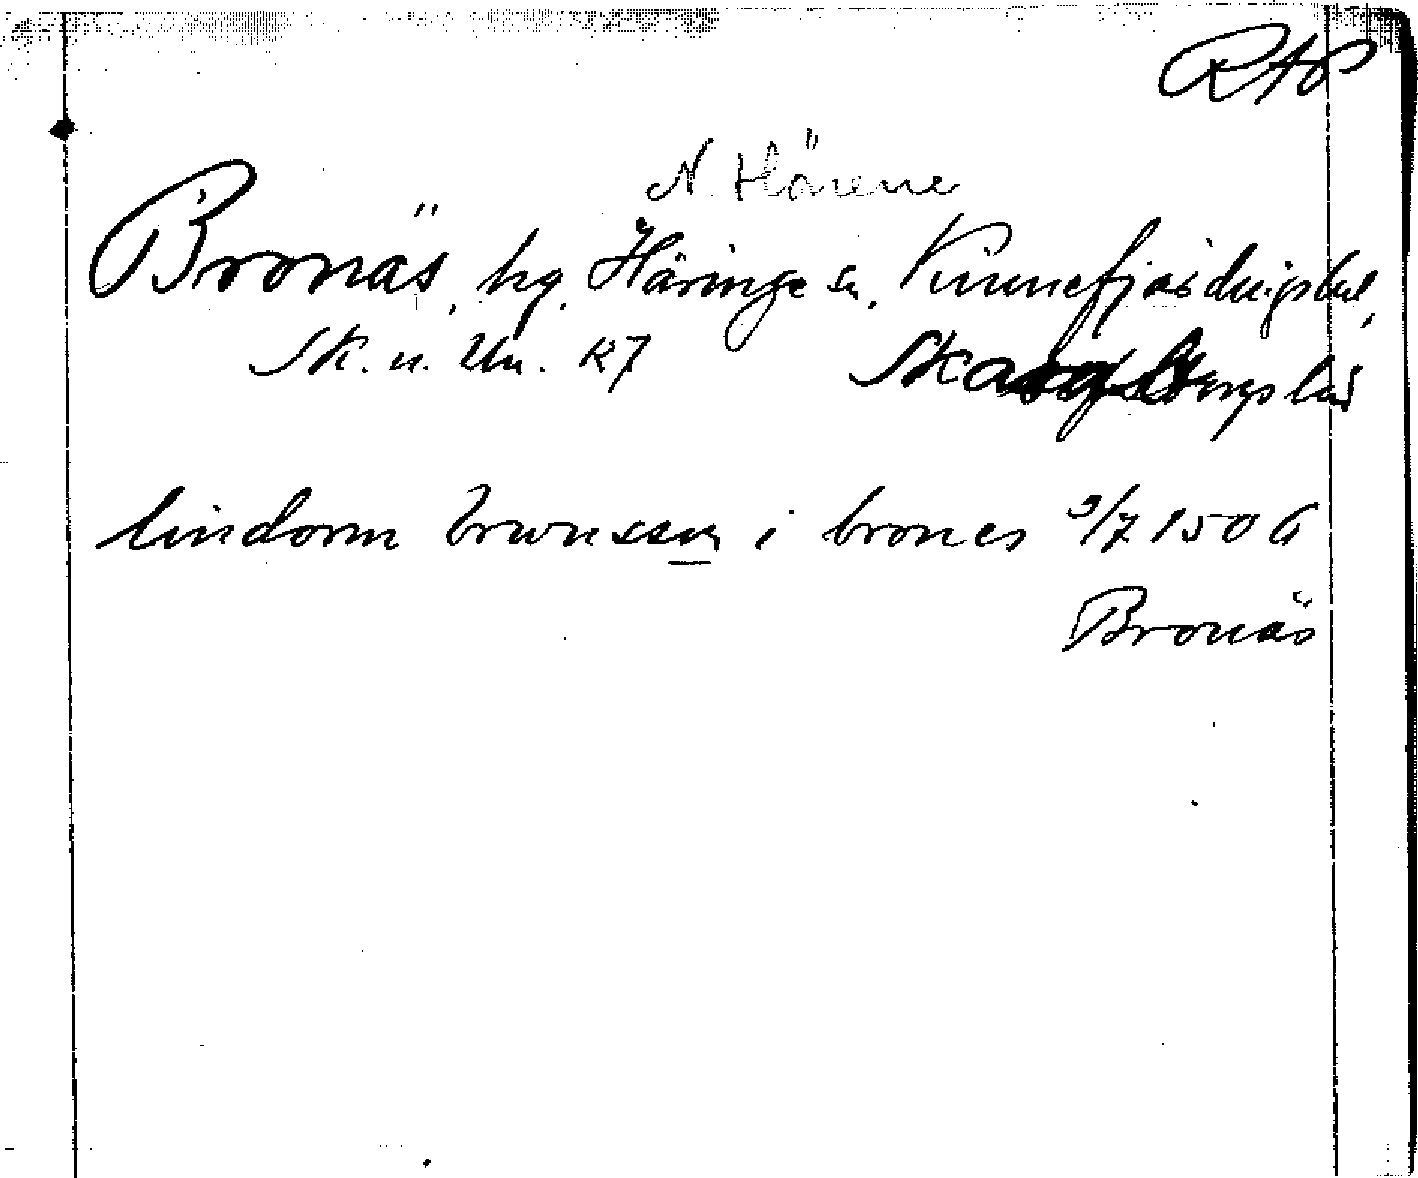 RAP
N. Härene
Bronäs, hg. Häringe sn, Kinnefjärdings hd,
Sk. n. Un. 127 Skaraborgs län
lindorm brunsson i brones 9/7 1506
Bronäs